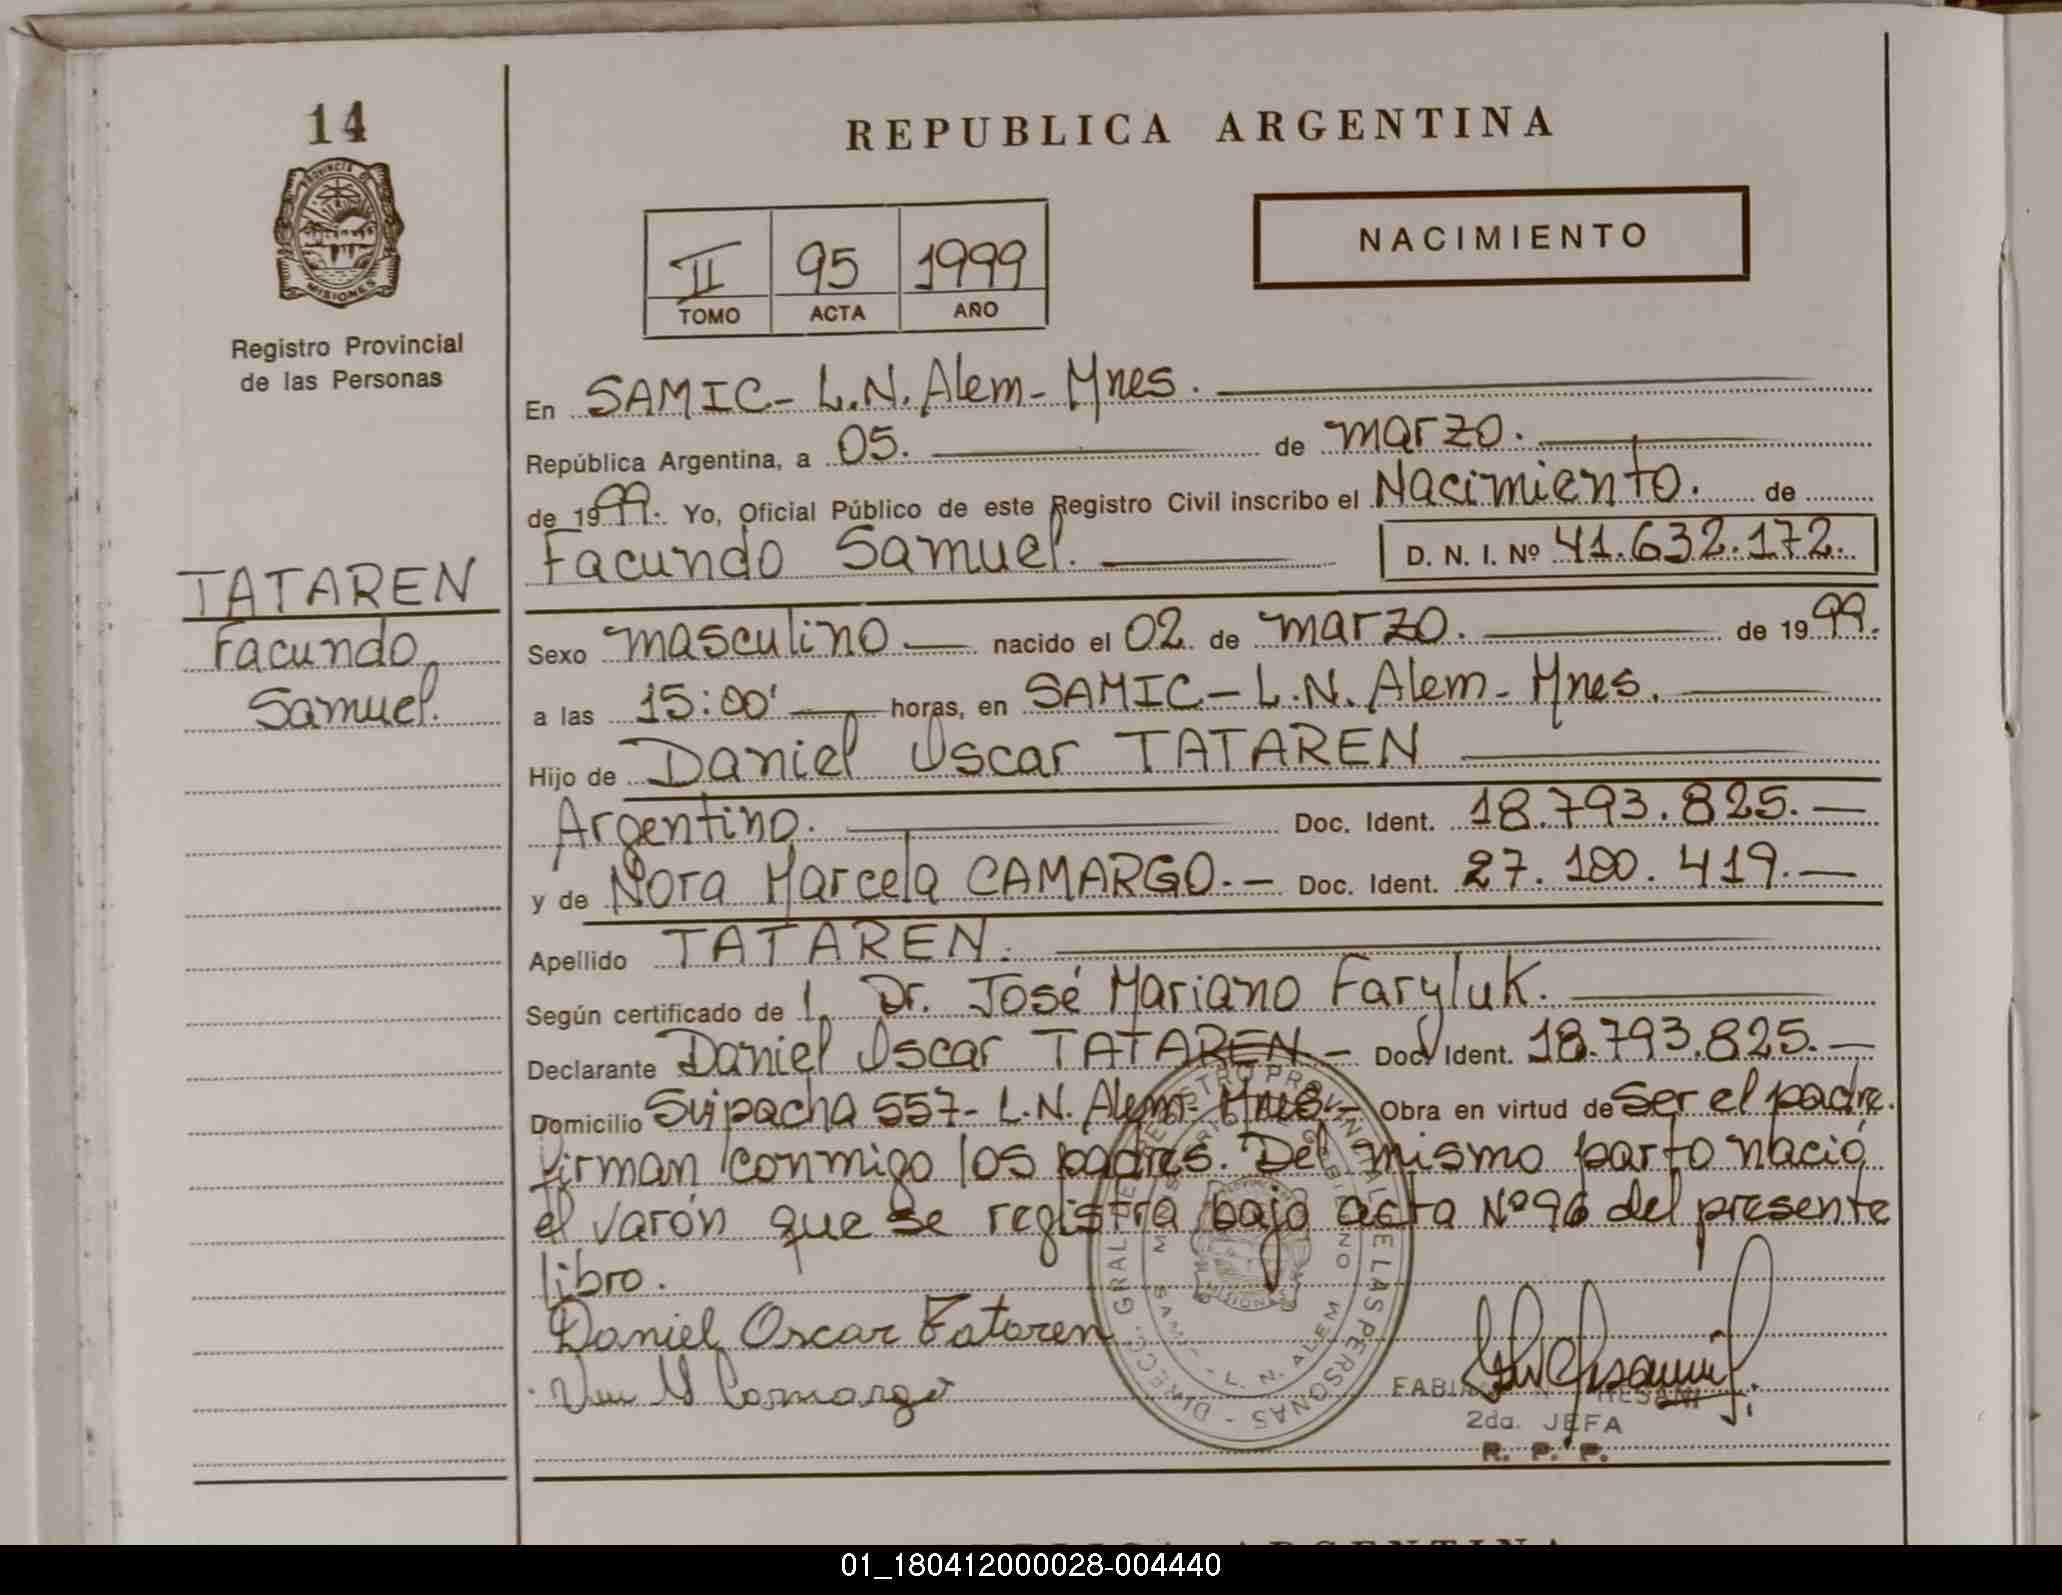 14
PROVINCIA DE
MISIONES
Registro Provincial
de las Personas
TATAREN
Facundo
Samuel.
REPUBLICA ARGENTINA
II 95 1999
TOMO ACTA AÑO
NACIMIENTO
En SAMIC- L.N. Alem- Mnes.
República Argentina, a 05. de marzo.
de 1999. Yo, Oficial Público de este Registro Civil inscribo el Nacimiento. de
Facundo Samuel. D. N. I. Nº 41.632.172.
Sexo masculino nacido el 02 de marzo. de 1999.
a las 15:00' horas, en SAMIC- L.N. Alem- Mnes.
Hijo de Daniel Oscar TATAREN
Argentino. Doc. Ident. 18.793.825.-
y de Nora Marcela CAMARGO.- Doc. Ident. 27.180.419.-
Apellido TATAREN.
Según certificado de l. Dr. José Mariano Faryluk.
Declarante Daniel Oscar TATAREN.- Doc. Ident. 18.793.825.-
Domicilio Suipacha 557- L.N. Alem- Mnes.- Obra en virtud de ser el padre.
firman conmigo los padres. Del mismo parto nació
el varón que se registra bajo acta Nº 96 del presente
libro.
Daniel Oscar Tataren
M Camargo
DIRECC. GRAL. DE REGISTRO PROVINCIAL DE LAS PERSONAS
L. N. ALEM
2da. JEFA
R. P. P.
REPUBLICA ARGENTINA
01_180412000028-004440